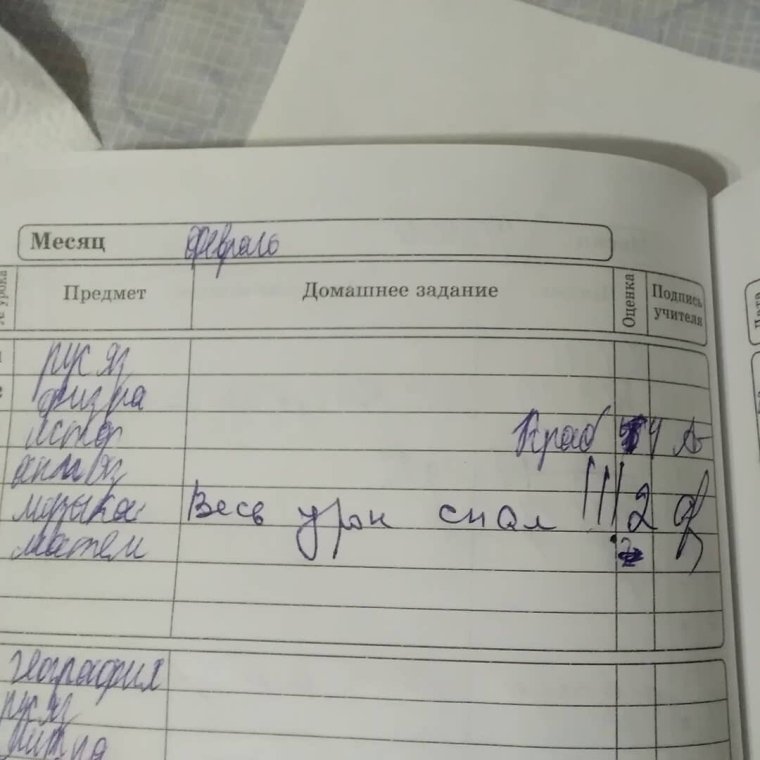 Месяц Февраль
Предмет Домашнее задание Оценка Подпись учителя
рус яз
физра
К раб 4
англ яз
музыка Весь урок спал !!! 2
матем
география
рус яз